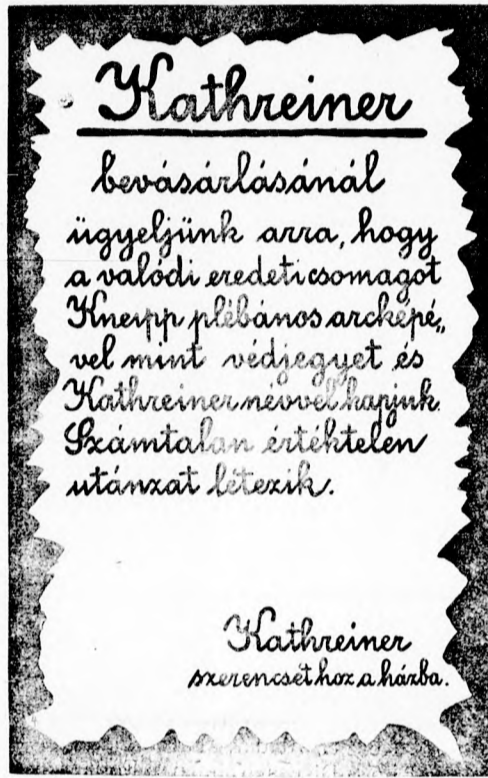 Kathreiner
bevásárlásánál
ügyeljünk arra, hogy
a valódi eredeti csomagot
Kneipp plébános arcképé„
vel mint védjegyet és
Kathreiner névvel kapjuk.
Számtalan értéktelen
utánzat létezik.
Kathreiner
szerencsét hoz a házba.